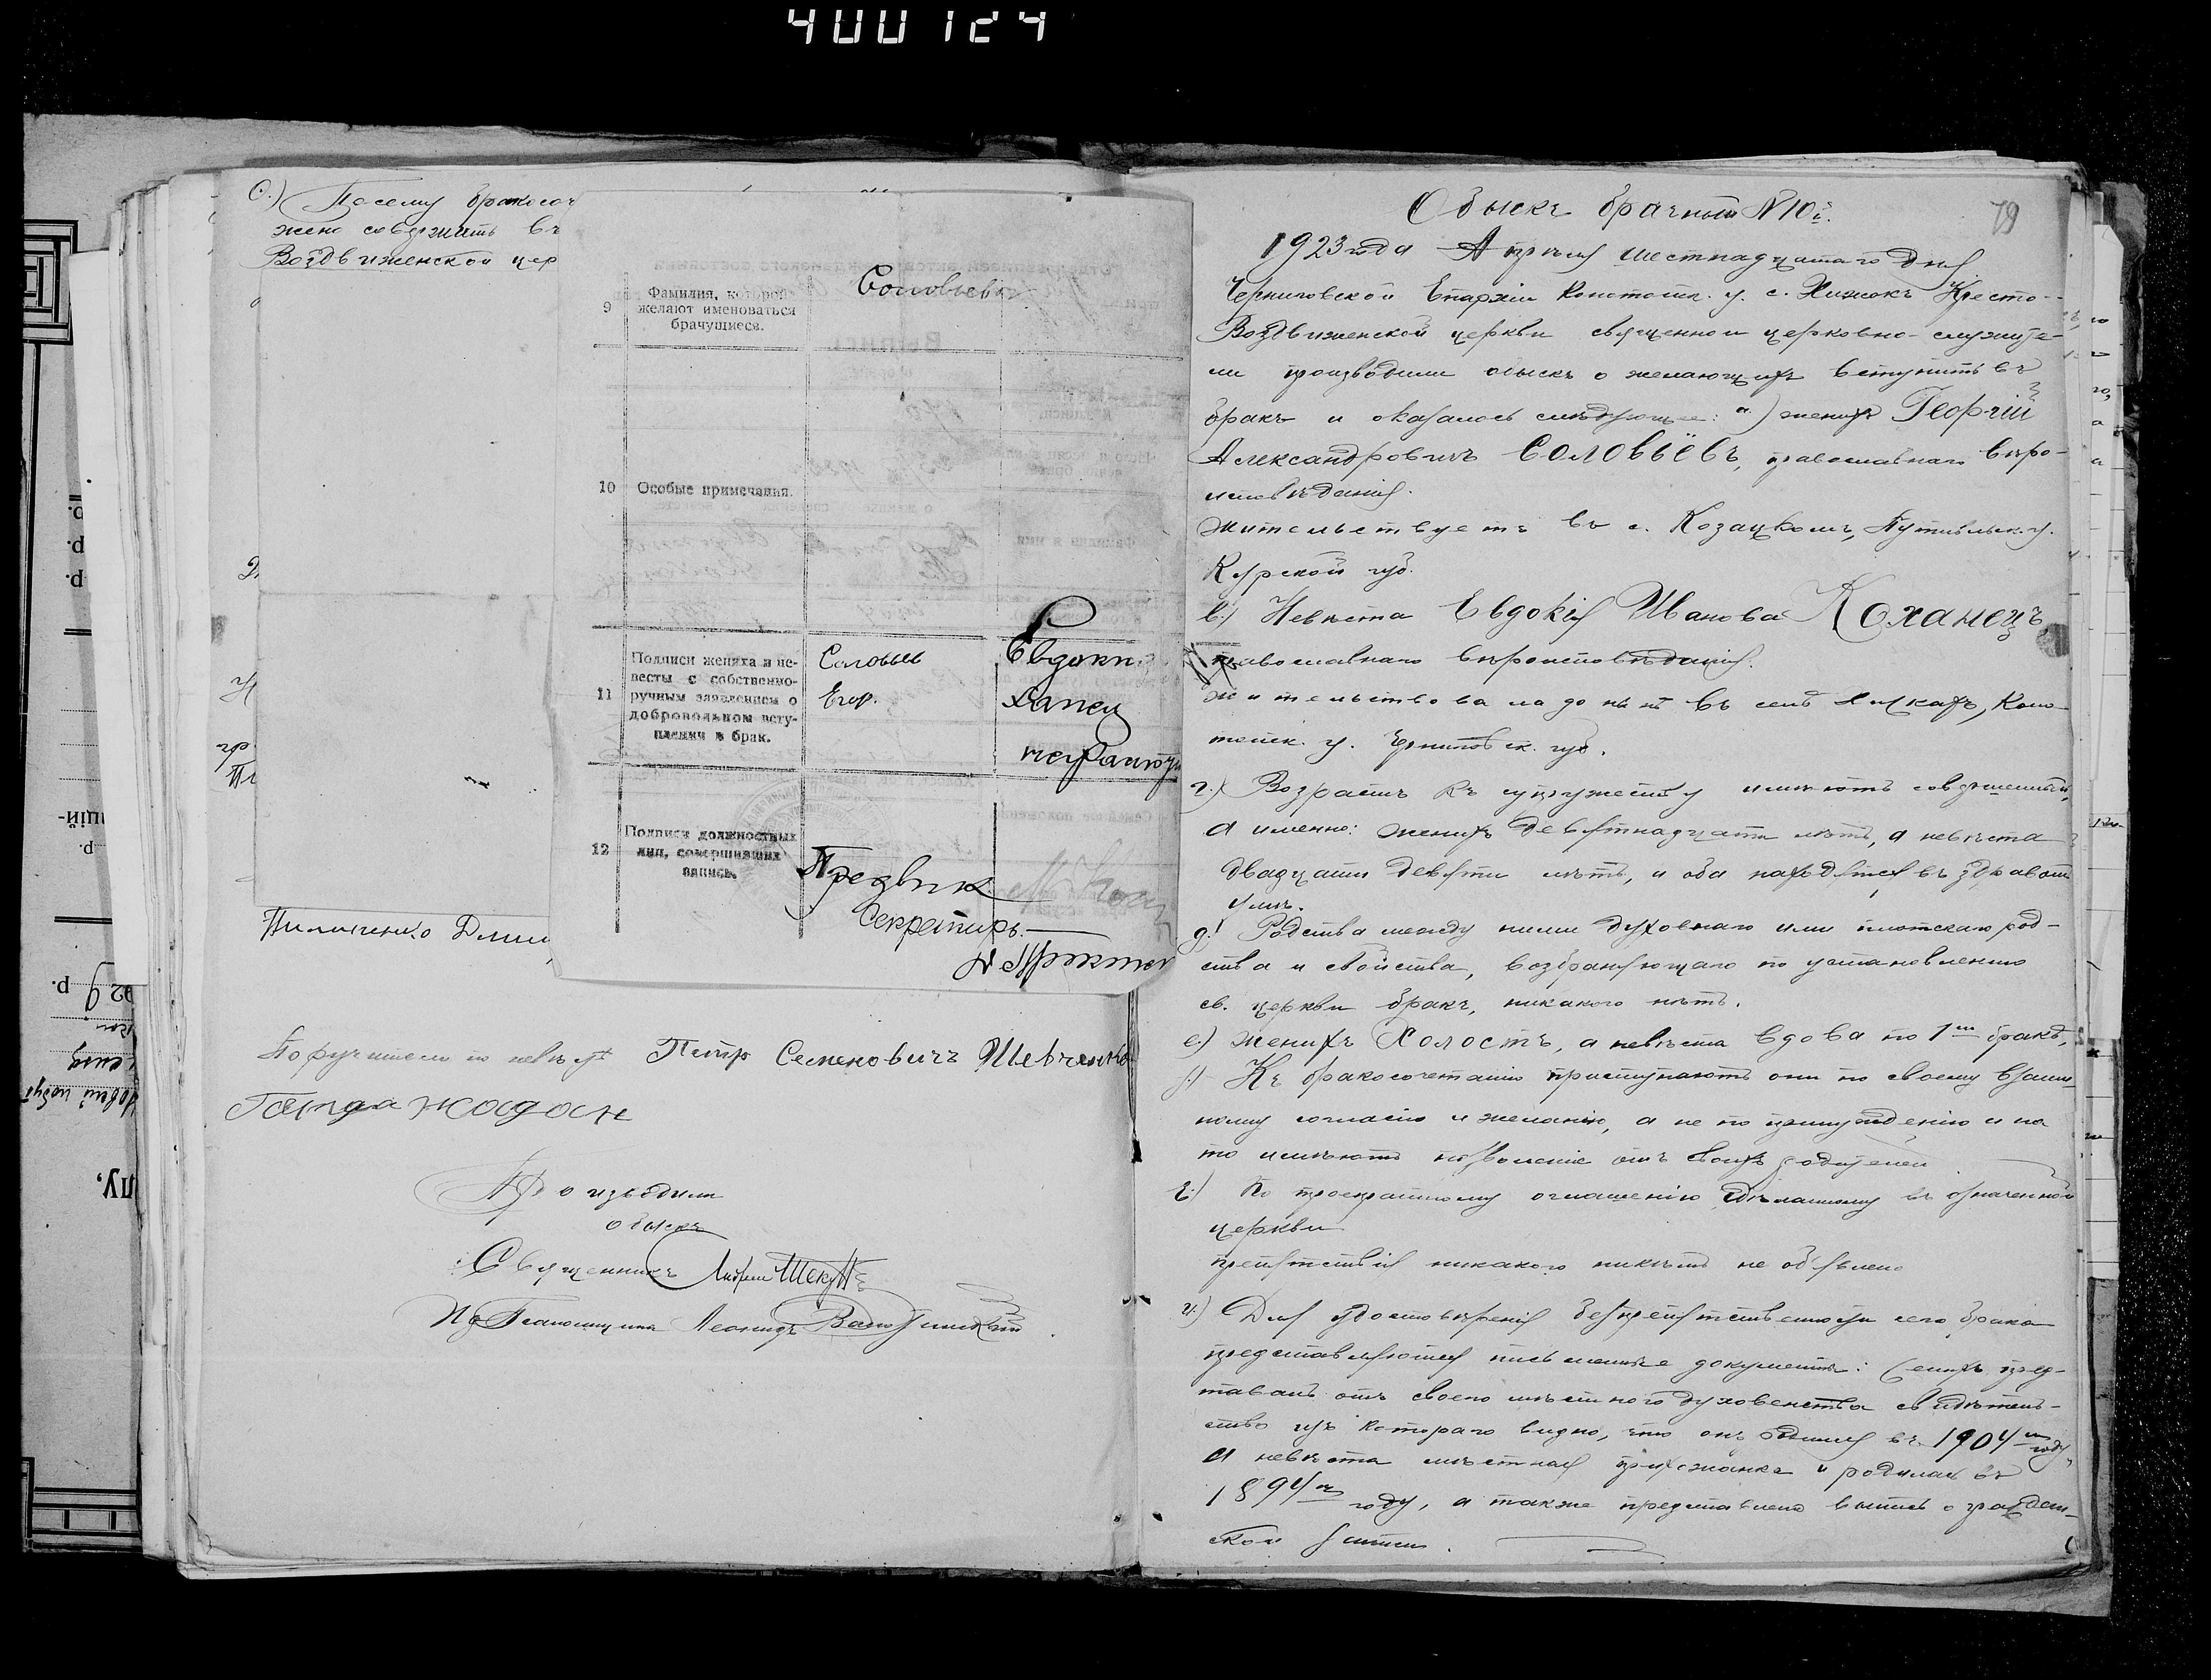 400124
Посему бракосоч
жено совершить въ
Воздвиженской цер
9
Фамилия, которой
желают именоваться
брачущиеся.
Соловьев
10
Особые примечания.
11
Подписи жениха и не-
весты с собственно-
ручным заявлением о
добровольном всту-
плении в брак.
Соловьев
Егор.
Евдокия
ханец
неграмотн
12
Подписи должностных
лиц, совершивших
запись.
Секретарь
Поручители по невѣстѣ Петр Семеновичъ Шевченко
жадан
Производили
обыскъ
Священникъ
Леонидъ
Обыскъ брачный №10й.
79
1923 года Апрѣля шестнадцатого дня
Черниговской Епархіи Конотопск. у. с. Хижокъ Кресто-
Воздвиженской церкви священно и церковно-служите-
ли производили обыскъ о желающихъ вступить въ
бракъ и оказалось слѣдующее: а) женихъ Георгій
Александровичъ Соловьёвъ, православнаго вѣро-
исповѣданія.
Жительствуетъ въ с. Козацкомъ, Путивльск. у.
Курской губ.
в.) Невѣста Евдокія Иванова Коханецъ,
православнаго вѣроисповѣданія.
жительствовала до нынѣ въ селѣ Хижкахъ, Коно-
топск. у. Черниговск. губ.
г.) Возрастъ къ супружеству имѣютъ совершенный,
а именно: женихъ девятнадцати лѣтъ, а невѣста
двадцати девяти лѣтъ, и оба находятся въ здравомъ
умѣ.
д.) Родства между ними духовнаго или плотскаго род-
ства и свойства, возбраняющаго по установленію
св. церкви бракъ, никакого нѣтъ.
е.) Женихъ Холостъ, а невѣста вдова по 1мъ бракѣ,
Къ бракосочетанію приступаютъ они по своему взаим-
ному согласію и желанію, а не по принужденію и на
то имѣютъ позволеніе отъ своихъ родителей
По троекратному оглашенію сдѣланному въ означенной
церкви
препятствія никакого никѣмъ не объявлено
и.) Для удостовѣренія безпрепятственности сего брака
представляются письменные документы: женихъ пред-
ставилъ отъ своего мѣстного духовенства свидѣтель-
ство изъ котораго видно, что онъ родился въ 1904мъ году,
а невѣста мѣстная прихожанка и родилась въ
1894мъ году, а также представлена выпись о граждан-
ской записи.